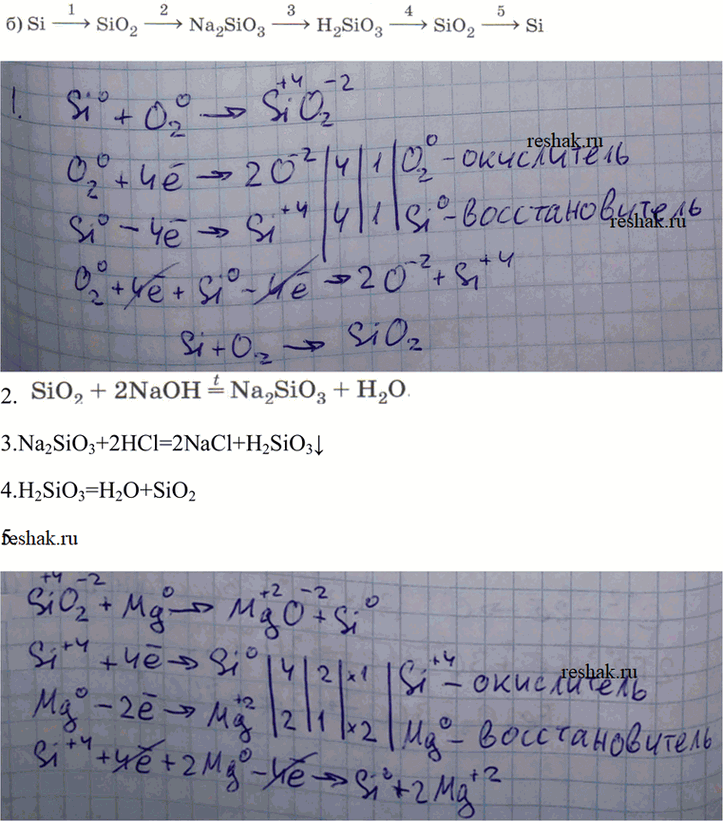 б) Si —1→ SiO₂ —2→ Na₂SiO₃ —3→ H₂SiO₃ —4→ SiO₂ —5→ Si
1. Si⁰ + O₂⁰ → Si⁺⁴O₂⁻²
reshak.ru
O₂⁰ + 4ē → 2O⁻² | 4 | 1 | O₂⁰ - окислитель
Si⁰ - 4ē → Si⁺⁴ | 4 | 1 | Si⁰ - восстановитель
reshak.ru
O₂⁰ + 4ē + Si⁰ - 4ē → 2O⁻² + Si⁺⁴
Si + O₂ → SiO₂
2. SiO₂ + 2NaOH =ᵗ Na₂SiO₃ + H₂O.
3.Na₂SiO₃+2HCl=2NaCl+H₂SiO₃↓
4.H₂SiO₃=H₂O+SiO₂
5.
reshak.ru
Si⁺⁴O₂⁻² + Mg⁰ → Mg⁺²O⁻² + Si⁰
Si⁺⁴ + 4ē → Si⁰ | 4 | 2 | ×1 | Si⁺⁴ - окислитель
reshak.ru
Mg⁰ - 2ē → Mg⁺² | 2 | 1 | ×2 | Mg⁰ - восстановитель
Si⁺⁴ + 4ē + 2Mg⁰ - 4ē → Si⁰ + 2Mg⁺²